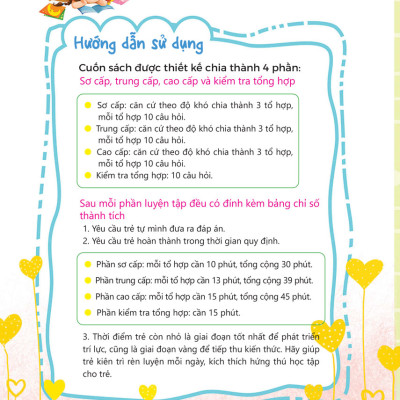 Hướng dẫn sử dụng
Cuốn sách được thiết kế chia thành 4 phần:
Sơ cấp, trung cấp, cao cấp và kiểm tra tổng hợp
Sơ cấp: căn cứ theo độ khó chia thành 3 tổ hợp,
mỗi tổ hợp 10 câu hỏi.
Trung cấp: căn cứ theo độ khó chia thành 3 tổ hợp,
mỗi tổ hợp 10 câu hỏi.
Cao cấp: căn cứ theo độ khó chia thành 3 tổ hợp,
mỗi tổ hợp 10 câu hỏi.
Kiểm tra tổng hợp: 10 câu hỏi.
Sau mỗi phần luyện tập đều có đính kèm bảng chỉ số
thành tích
1. Yêu cầu trẻ tự mình đưa ra đáp án.
2. Yêu cầu trẻ hoàn thành trong thời gian quy định.
Phần sơ cấp: mỗi tổ hợp cần 10 phút, tổng cộng 30 phút.
Phần trung cấp: mỗi tổ hợp cần 13 phút, tổng cộng 39 phút.
Phần cao cấp: mỗi tổ hợp cần 15 phút, tổng cộng 45 phút.
Phần kiểm tra tổng hợp: cần 15 phút.
3. Thời điểm trẻ còn nhỏ là giai đoạn tốt nhất để phát triển
trí lực, cũng là giai đoạn vàng để tiếp thu kiến thức. Hãy giúp
trẻ kiên trì rèn luyện mỗi ngày, kích thích hứng thú học tập
cho trẻ.